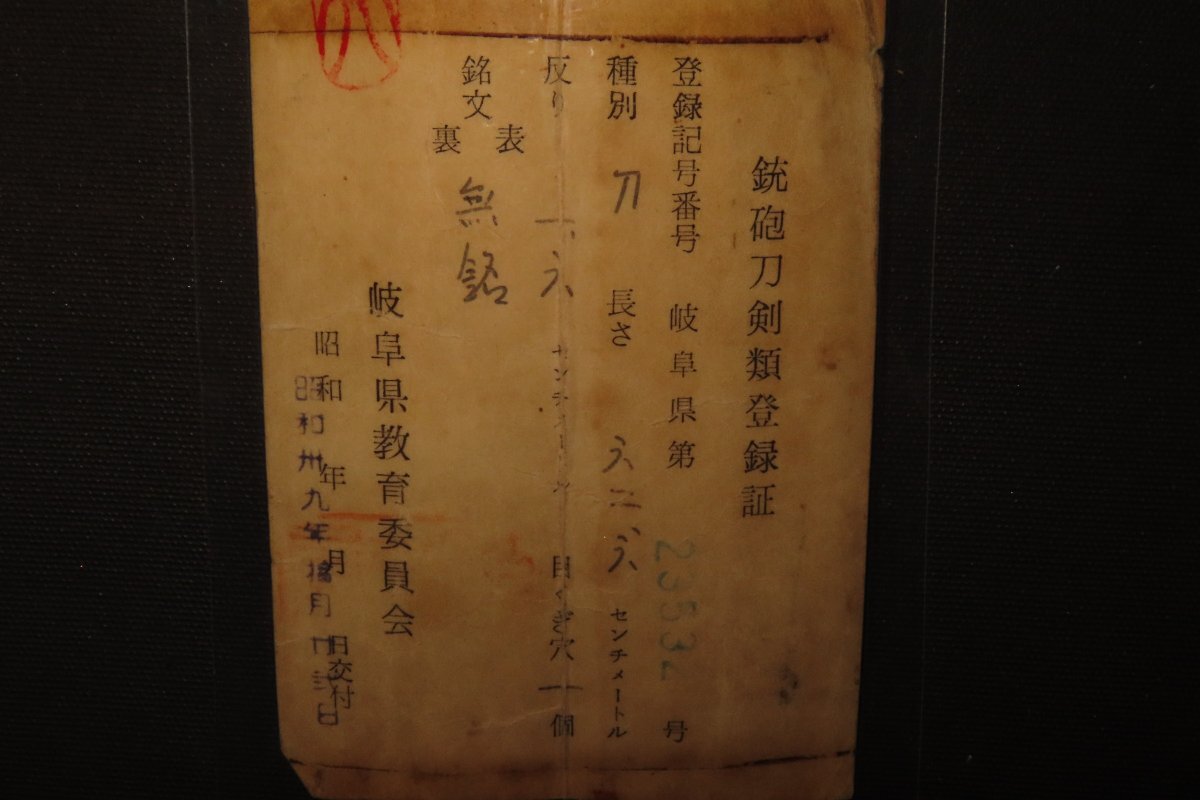 銃砲刀剣類登録証
登録記号番号 岐阜県第 23532 号
種別 刀 長さ 六二、六 センチメートル
反り 一、六 センチメートル 目くぎ穴 一 個
銘文 表 無銘
裏
岐阜県教育委員会
昭和 年 月 日交付
昭和卅九年拾月廿弐日